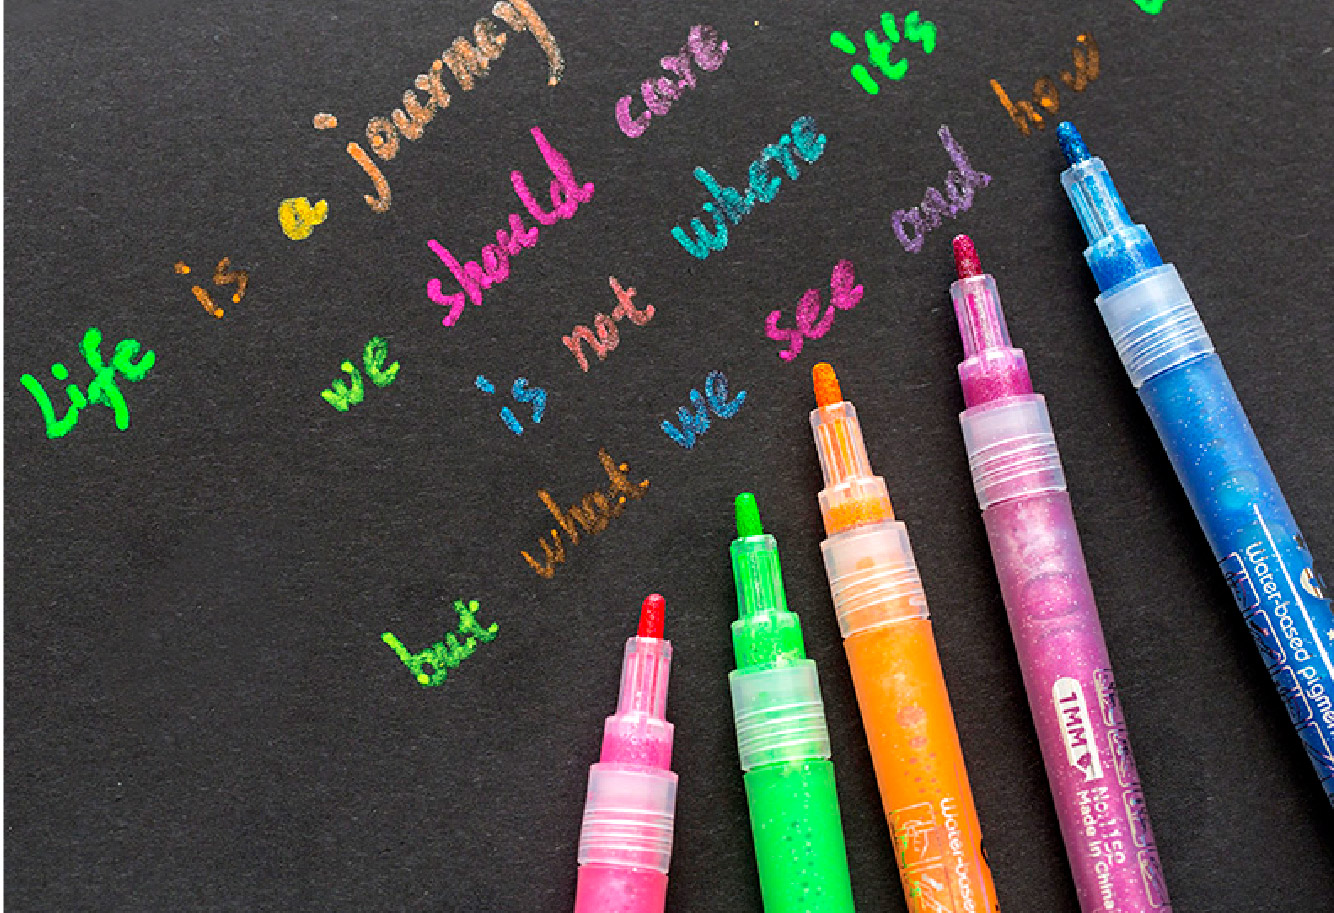 Life is a journey
we should care
is not where it's
but what we see and how
Water-based pigmen
1MM
No.115
Made in China
Water-base